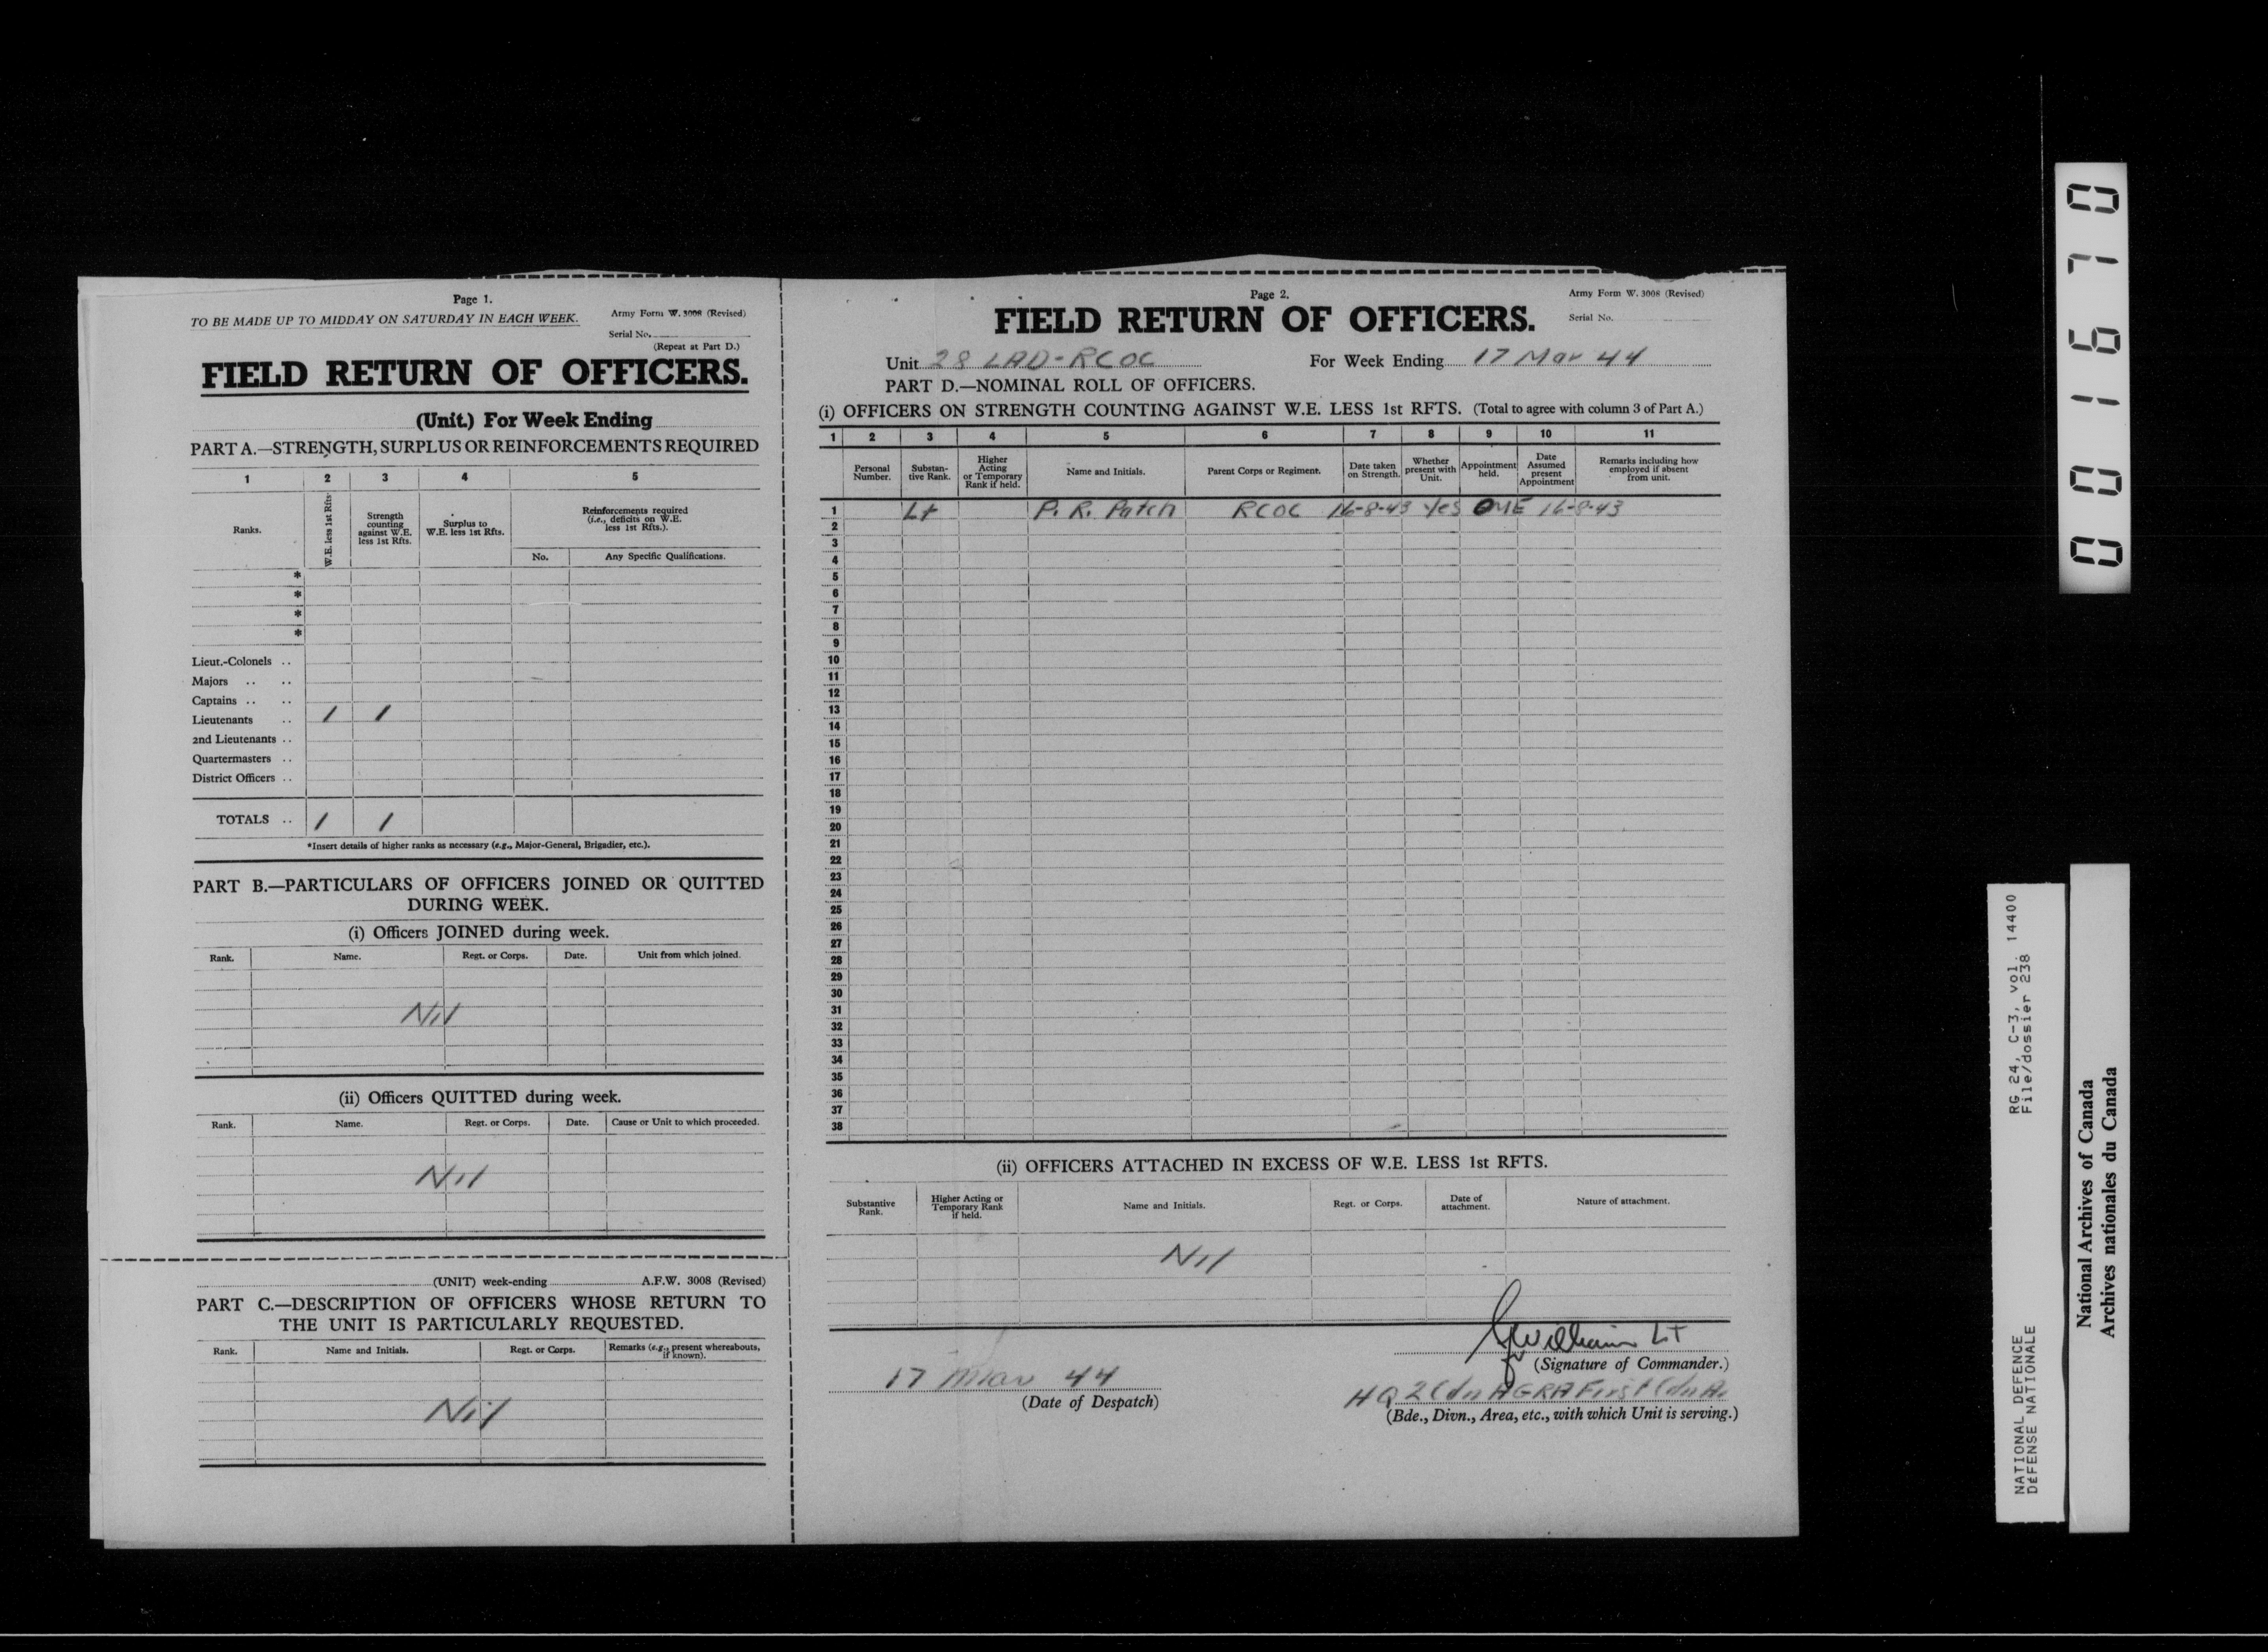 Page 1.
TO BE MADE UP TO MIDDAY ON SATURDAY IN EACH WEEK.
Army Form W. 3008 (Revised)
Serial No.
(Repeat at Part D.)
FIELD RETURN OF OFFICERS.
(Unit.) For Week Ending
PART A.—STRENGTH, SURPLUS OR REINFORCEMENTS REQUIRED
1 2 3 4 5
Ranks.
W.E. less 1st Rfts.
Strength
counting
against W.E.
less 1st Rfts.
Surplus to
W.E. less 1st Rfts.
Reinforcements required
(i.e., deficits on W.E.
less 1st Rfts.).
No. Any Specific Qualifications.
*
*
*
*
Lieut.-Colonels ..
Majors .. ..
Captains .. ..
Lieutenants .. 1 1
2nd Lieutenants ..
Quartermasters ..
District Officers ..
TOTALS .. 1 1
*Insert details of higher ranks as necessary (e.g., Major-General, Brigadier, etc.).
PART B.—PARTICULARS OF OFFICERS JOINED OR QUITTED
DURING WEEK.
(i) Officers JOINED during week.
Rank. Name. Regt. or Corps. Date. Unit from which joined.
Nil
(ii) Officers QUITTED during week.
Rank. Name. Regt. or Corps. Date. Cause or Unit to which proceeded.
Nil
(UNIT) week-ending A.F.W. 3008 (Revised)
PART C.—DESCRIPTION OF OFFICERS WHOSE RETURN TO
THE UNIT IS PARTICULARLY REQUESTED.
Rank. Name and Initials. Regt. or Corps. Remarks (e.g., present whereabouts,
if known).
Nil
Page 2.
Army Form W. 3008 (Revised)
Serial No.
FIELD RETURN OF OFFICERS.
Unit 28 LAD-RCOC For Week Ending 17 Mar 44
PART D.—NOMINAL ROLL OF OFFICERS.
(i) OFFICERS ON STRENGTH COUNTING AGAINST W.E. LESS 1st RFTS. (Total to agree with column 3 of Part A.)
1 2 3 4 5 6 7 8 9 10 11
Personal
Number.
Substan-
tive Rank.
Higher
Acting
or Temporary
Rank if held.
Name and Initials.
Parent Corps or Regiment.
Date taken
on Strength.
Whether
present with
Unit.
Appointment
held.
Date
Assumed
present
Appointment
Remarks including how
employed if absent
from unit.
1 Lt P. R. Patch RCOC 16-8-43 Yes OME 16-8-43
2
3
4
5
6
7
8
9
10
11
12
13
14
15
16
17
18
19
20
21
22
23
24
25
26
27
28
29
30
31
32
33
34
35
36
37
38
(ii) OFFICERS ATTACHED IN EXCESS OF W.E. LESS 1st RFTS.
Substantive
Rank.
Higher Acting or
Temporary Rank
if held.
Name and Initials.
Regt. or Corps.
Date of
attachment.
Nature of attachment.
Nil
Lt
(Signature of Commander.)
17 Mar 44
(Date of Despatch)
HQ 2 Cdn AGRA First Cdn A.
(Bde., Divn., Area, etc., with which Unit is serving.)
001670
RG 24, C-3, vol. 14400
File/dossier 238
NATIONAL DEFENCE
DÉFENSE NATIONALE
National Archives of Canada
Archives nationales du Canada